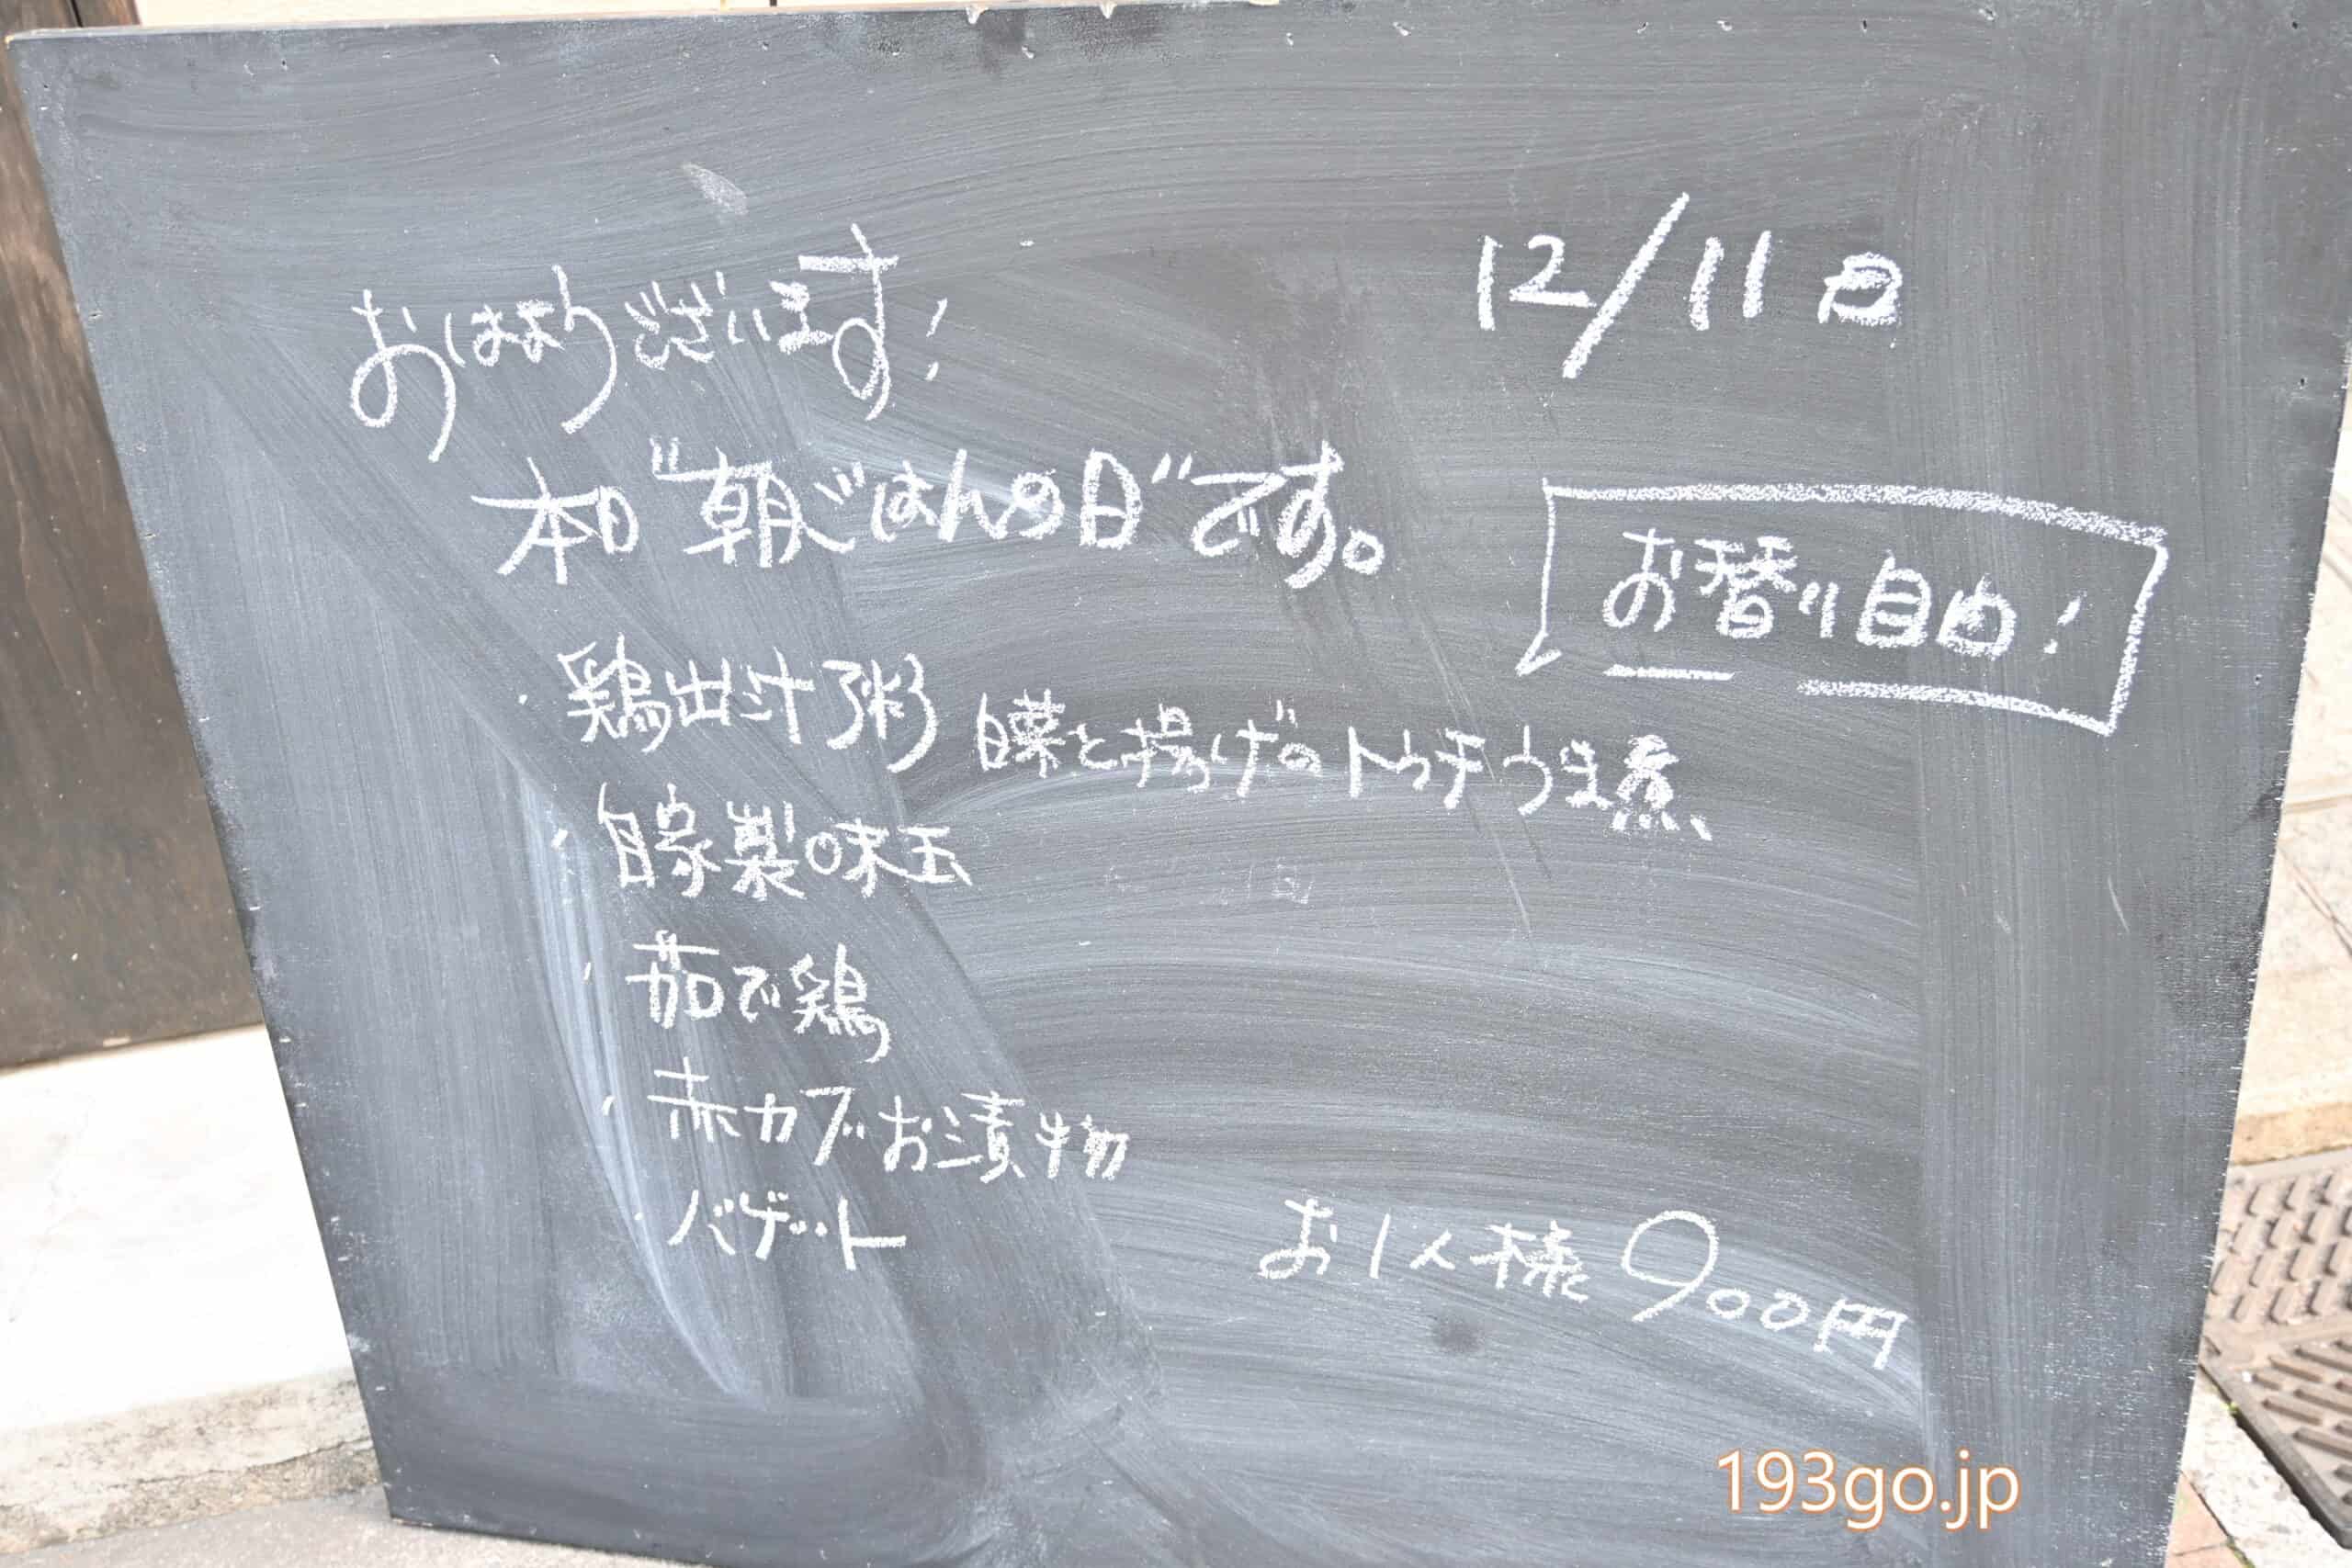 12/11 日
おはようございます!
本日"朝ごはんの日"です。
お替り自由!
・鶏出汁粥 白菜と揚げのトウチうま煮、
・自家製味玉
・茹で鶏
・赤カブお漬物
・バゲット
お1人様 900円
193go.jp